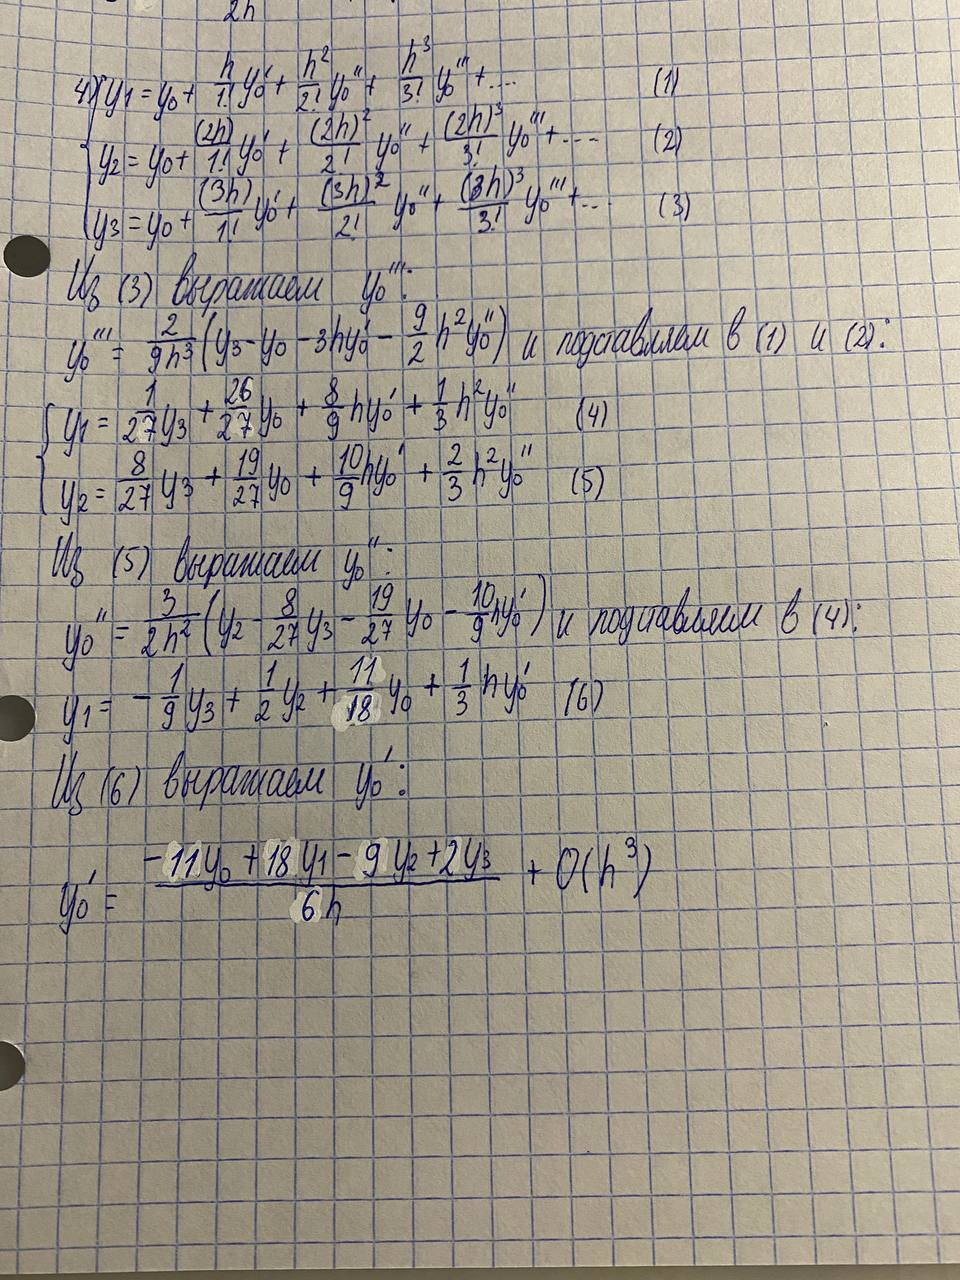 2h
4) y₁ = y₀ + h/1! y₀' + h²/2! y₀'' + h³/3! y₀''' + .... (1)
y₂ = y₀ + (2h)/1! y₀' + (2h)²/2! y₀'' + (2h)³/3! y₀''' + .... (2)
y₃ = y₀ + (3h)/1! y₀' + (3h)²/2! y₀'' + (3h)³/3! y₀''' + ... (3)
Из (3) выражаем y₀''':
y₀''' = 2/9h³ (y₃ - y₀ - 3hy₀' - 9/2 h²y₀'') и подставляем в (1) и (2):
y₁ = 1/27 y₃ + 26/27 y₀ + 8/9 hy₀' + 1/3 h²y₀'' (4)
y₂ = 8/27 y₃ + 19/27 y₀ + 10/9 hy₀' + 2/3 h²y₀'' (5)
Из (5) выражаем y₀'':
y₀'' = 3/2h² (y₂ - 8/27 y₃ - 19/27 y₀ - 10/9 hy₀') и подставляем в (4):
y₁ = - 1/9 y₃ + 1/2 y₂ + 11/18 y₀ + 1/3 hy₀' (6)
Из (6) выражаем y₀':
y₀' = (-11y₀ + 18y₁ - 9y₂ + 2y₃)/6h + O(h³)